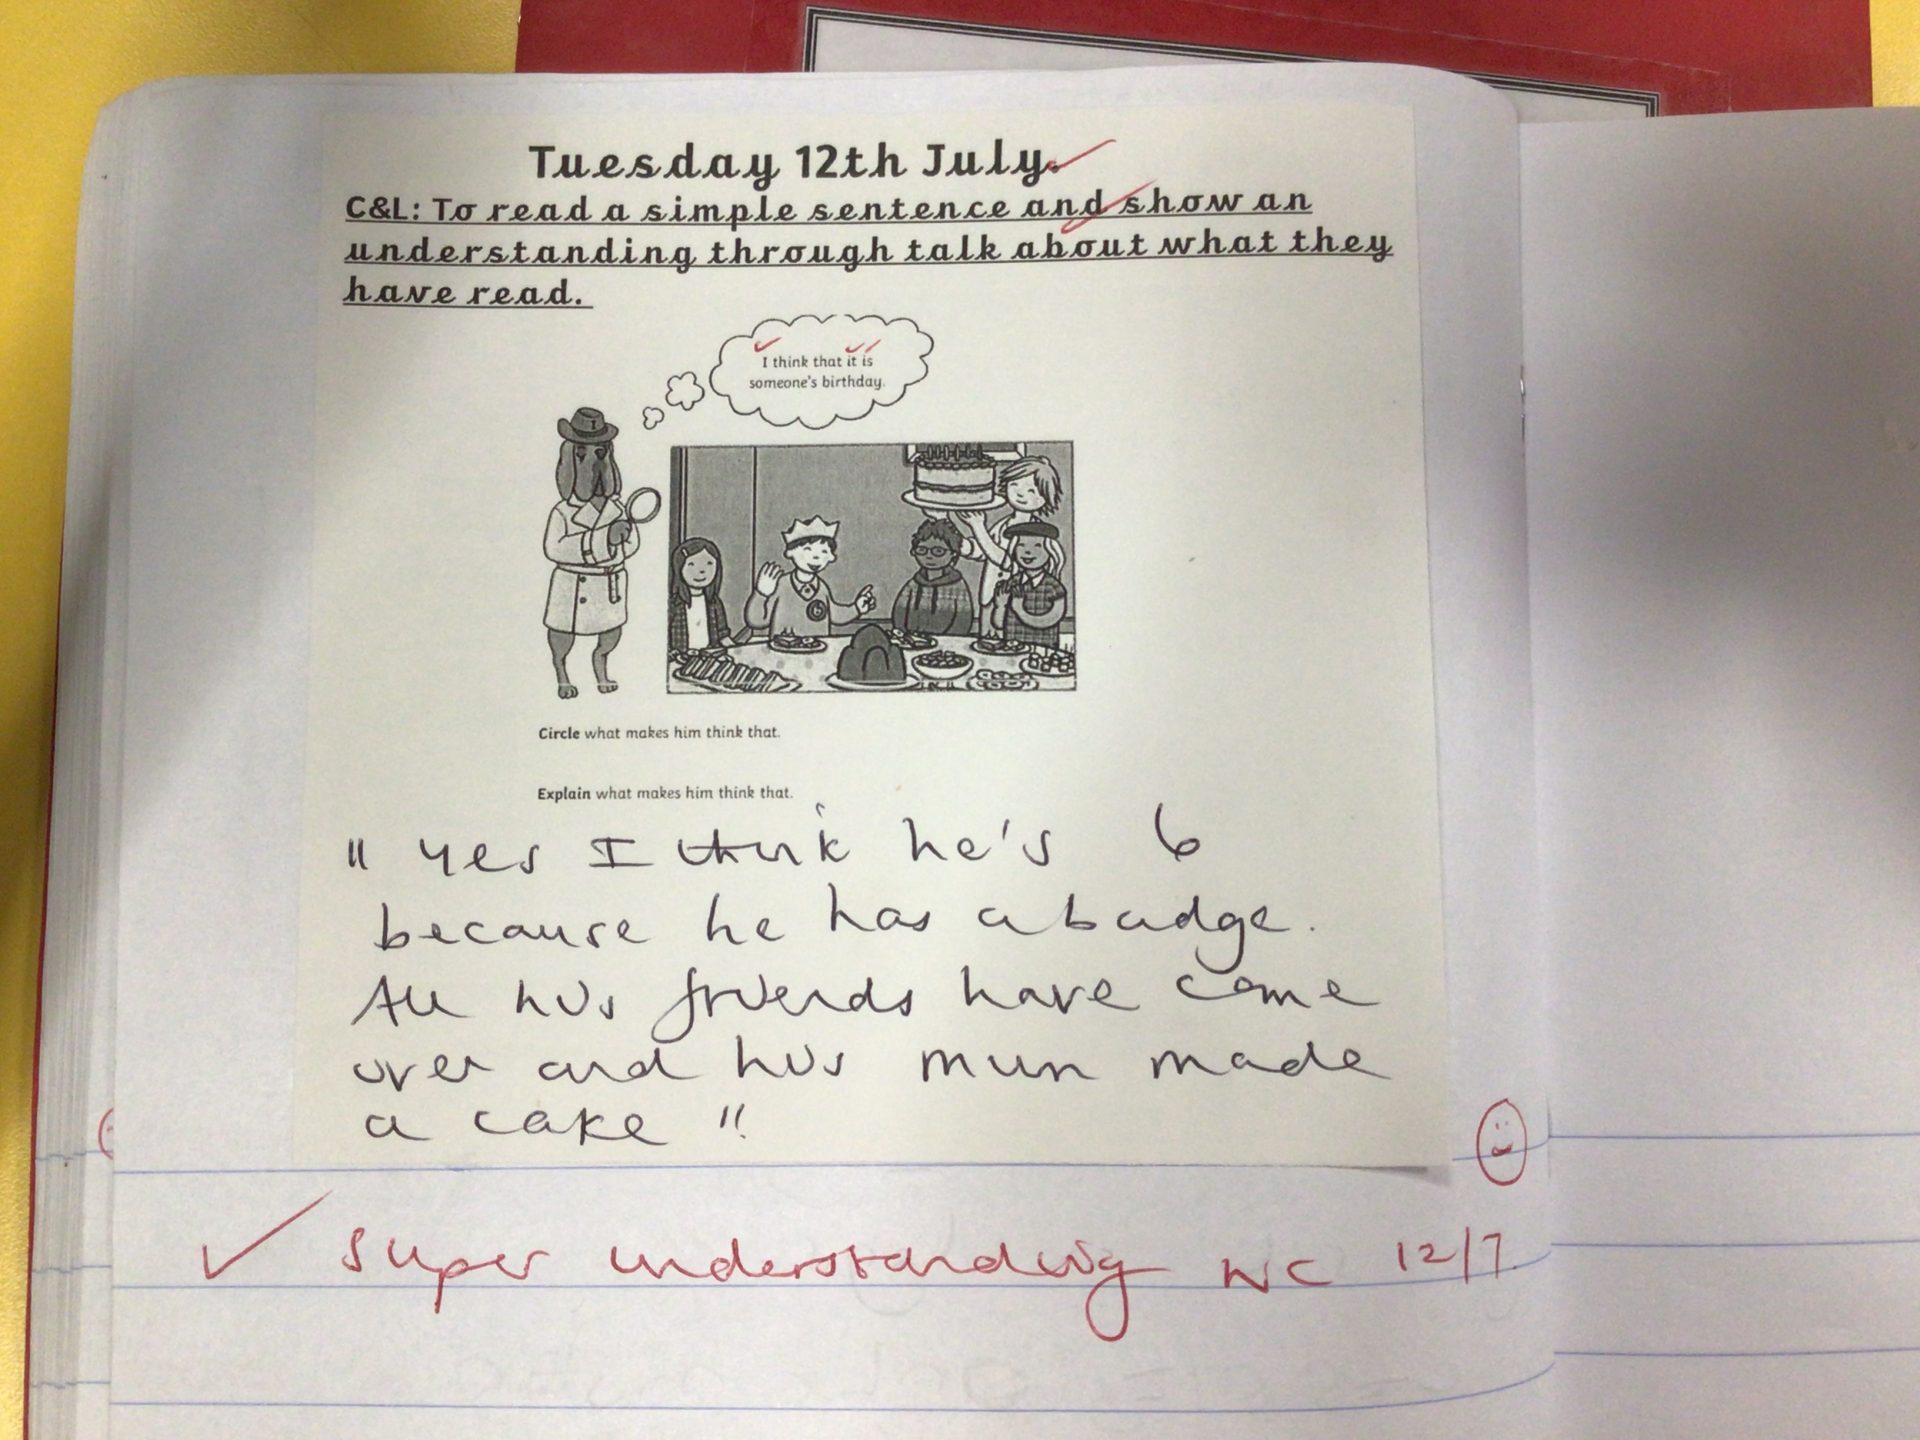 Tuesday 12th July.
C&L: To read a simple sentence and show an
understanding through talk about what they
have read.
I think that it is
someone's birthday.
Circle what makes him think that.
Explain what makes him think that.
" yes I think he's 6
because he has a badge.
All his friends have come
over and his mum made
a cake "
super understanding NC 12/7